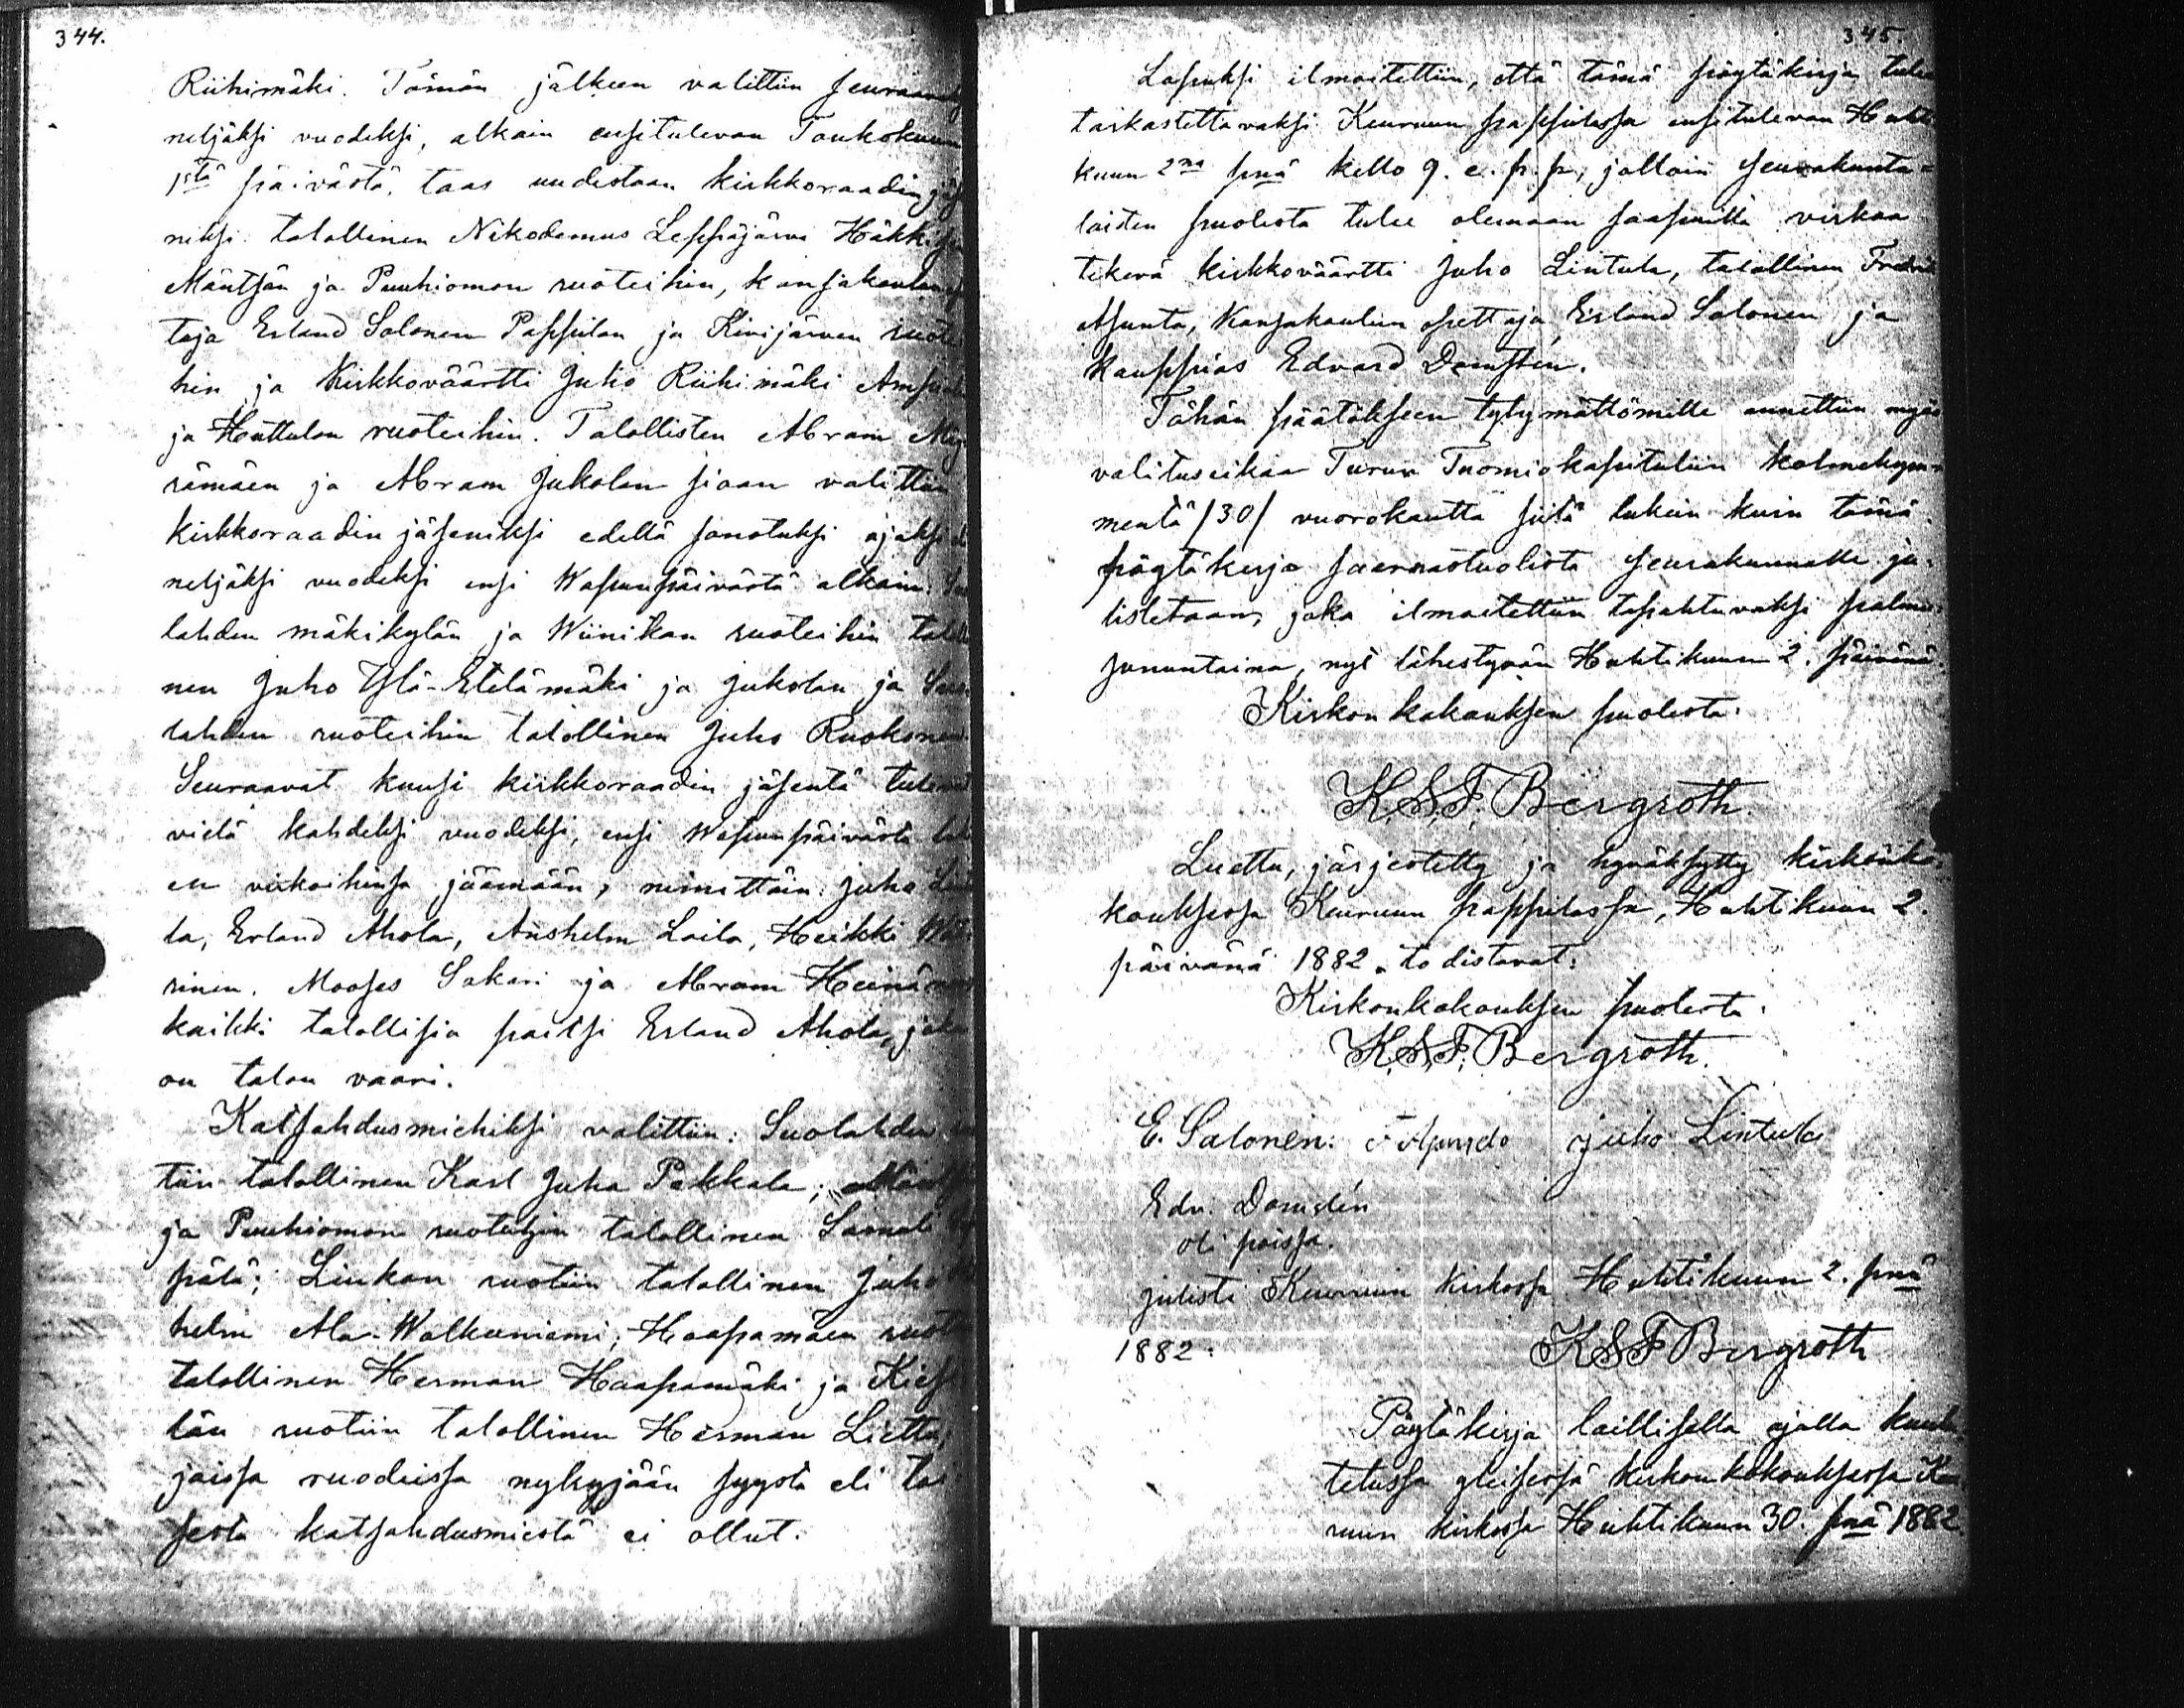 344.
Riihimäki. Tämän jälkeen valittiin seuraavaksi
neljäksi vuodeksi, alkain ensitulevan Toukokuun
1stä päivästä, taas uudestaan kirkkoraadin jäse
niksi: talollinen Nikodemus Leppäjärvi Häkkisen
Mäntsän ja Puuhiomon ruoteihin, kansakoulun
taja Erland Salonen Pappilan ja Kivijärven ruotei
hin ja Kirkkoväärtti Juho Riihimäki
ja Huttulan ruoteihin. Talollisten Abram
rämäen ja Abram Jukolan siaan valittiin
kirkkoraadin jäseniksi edellä sanotuksi ajaksi
neljäksi vuodeksi ensi Wapunpäivästä alkain:
lahden mäkikylän ja Wiinikan ruoteihin talolli
nen Juho Ylä-Etelämäki ja Jukolan ja
lahden ruoteihin talollinen Juho Ruokonen.
Seuraavat kuusi kirkkoraadin jäsentä tulevat
vielä kahdeksi vuodeksi, ensi Wapunpäivästä
en virkoihinsa jäämään, nimittäin: Juho
la, Erland Ahola, Anshelm Laila, Heikki
rinen, Mooses Sakari ja Abram Heinä
kaikki talollisia paitsi Erland Ahola, joka
on talon vaari.
Katsahdusmiehiksi valittiin: Suolahden
tiin talollinen Karl Juha Pakkala;
ja Puuhiomon ruoteihin talollinen
pätä; Liukon ruotiin talollinen Juho
helm Ala-Walkeeniemi; Haapamäen ruoti
talollinen Herman Haapamäki ja
län ruotiin talollinen Herman
joissa ruodeissa nykyjään syystä eli toi
sesta katsahdusmiestä ei ollut.
345
Lopuksi ilmoitettiin, että tämä pöytäkirja tulee
tarkastettavaksi Keuruun pappilassa ensitulevan Huhti
kuun 2na pnä kello 9. e. p. p., jolloin seurakunta-
laisten puolesta tulee olemaan saapuilla virkaa
tekevä kirkkoväärtti Juho Lintula, talollinen Fredrik
Asunta, Kansakoulun opettaja Erland Salonen ja
kauppias Edvard Domstén.
Tähän päätökseen tytymättömille annettiin myös
valitusaikaa Turun Tuomiokapituliin kolmekym-
mentä /30/ vuorokautta siitä lukein kuin tämä
pöytäkirja saarnastuolista seurakunnalle ju-
listetaan, joka ilmoitettiin tapahtuvaksi palmu-
sunnuntaina, nyt lähestyvän Huhtikuun 2. päivänä.
Kirkonkokouksen puolesta:
K.S.F. Bergroth.
Luettu, järjestetty ja hyväksytty kirkonko-
kouksessa Keuruun pappilassa, Huhtikuun 2.
päivänä 1882. todistavat:
Kirkonkokouksen puolesta.
K.S.F. Bergroth.
E. Salonen. Juho Lintula
Edv. Domstén
oli poissa.
Julisti Keuruun kirkossa Huhtikuun 2. pnä
1882. K S F Bergroth
Pöytäkirja laillisella ajalla kuulu
tetussa yleisessä kirkonkokouksessa Keu
ruun kirkossa Huhtikuun 30. pnä 1882.